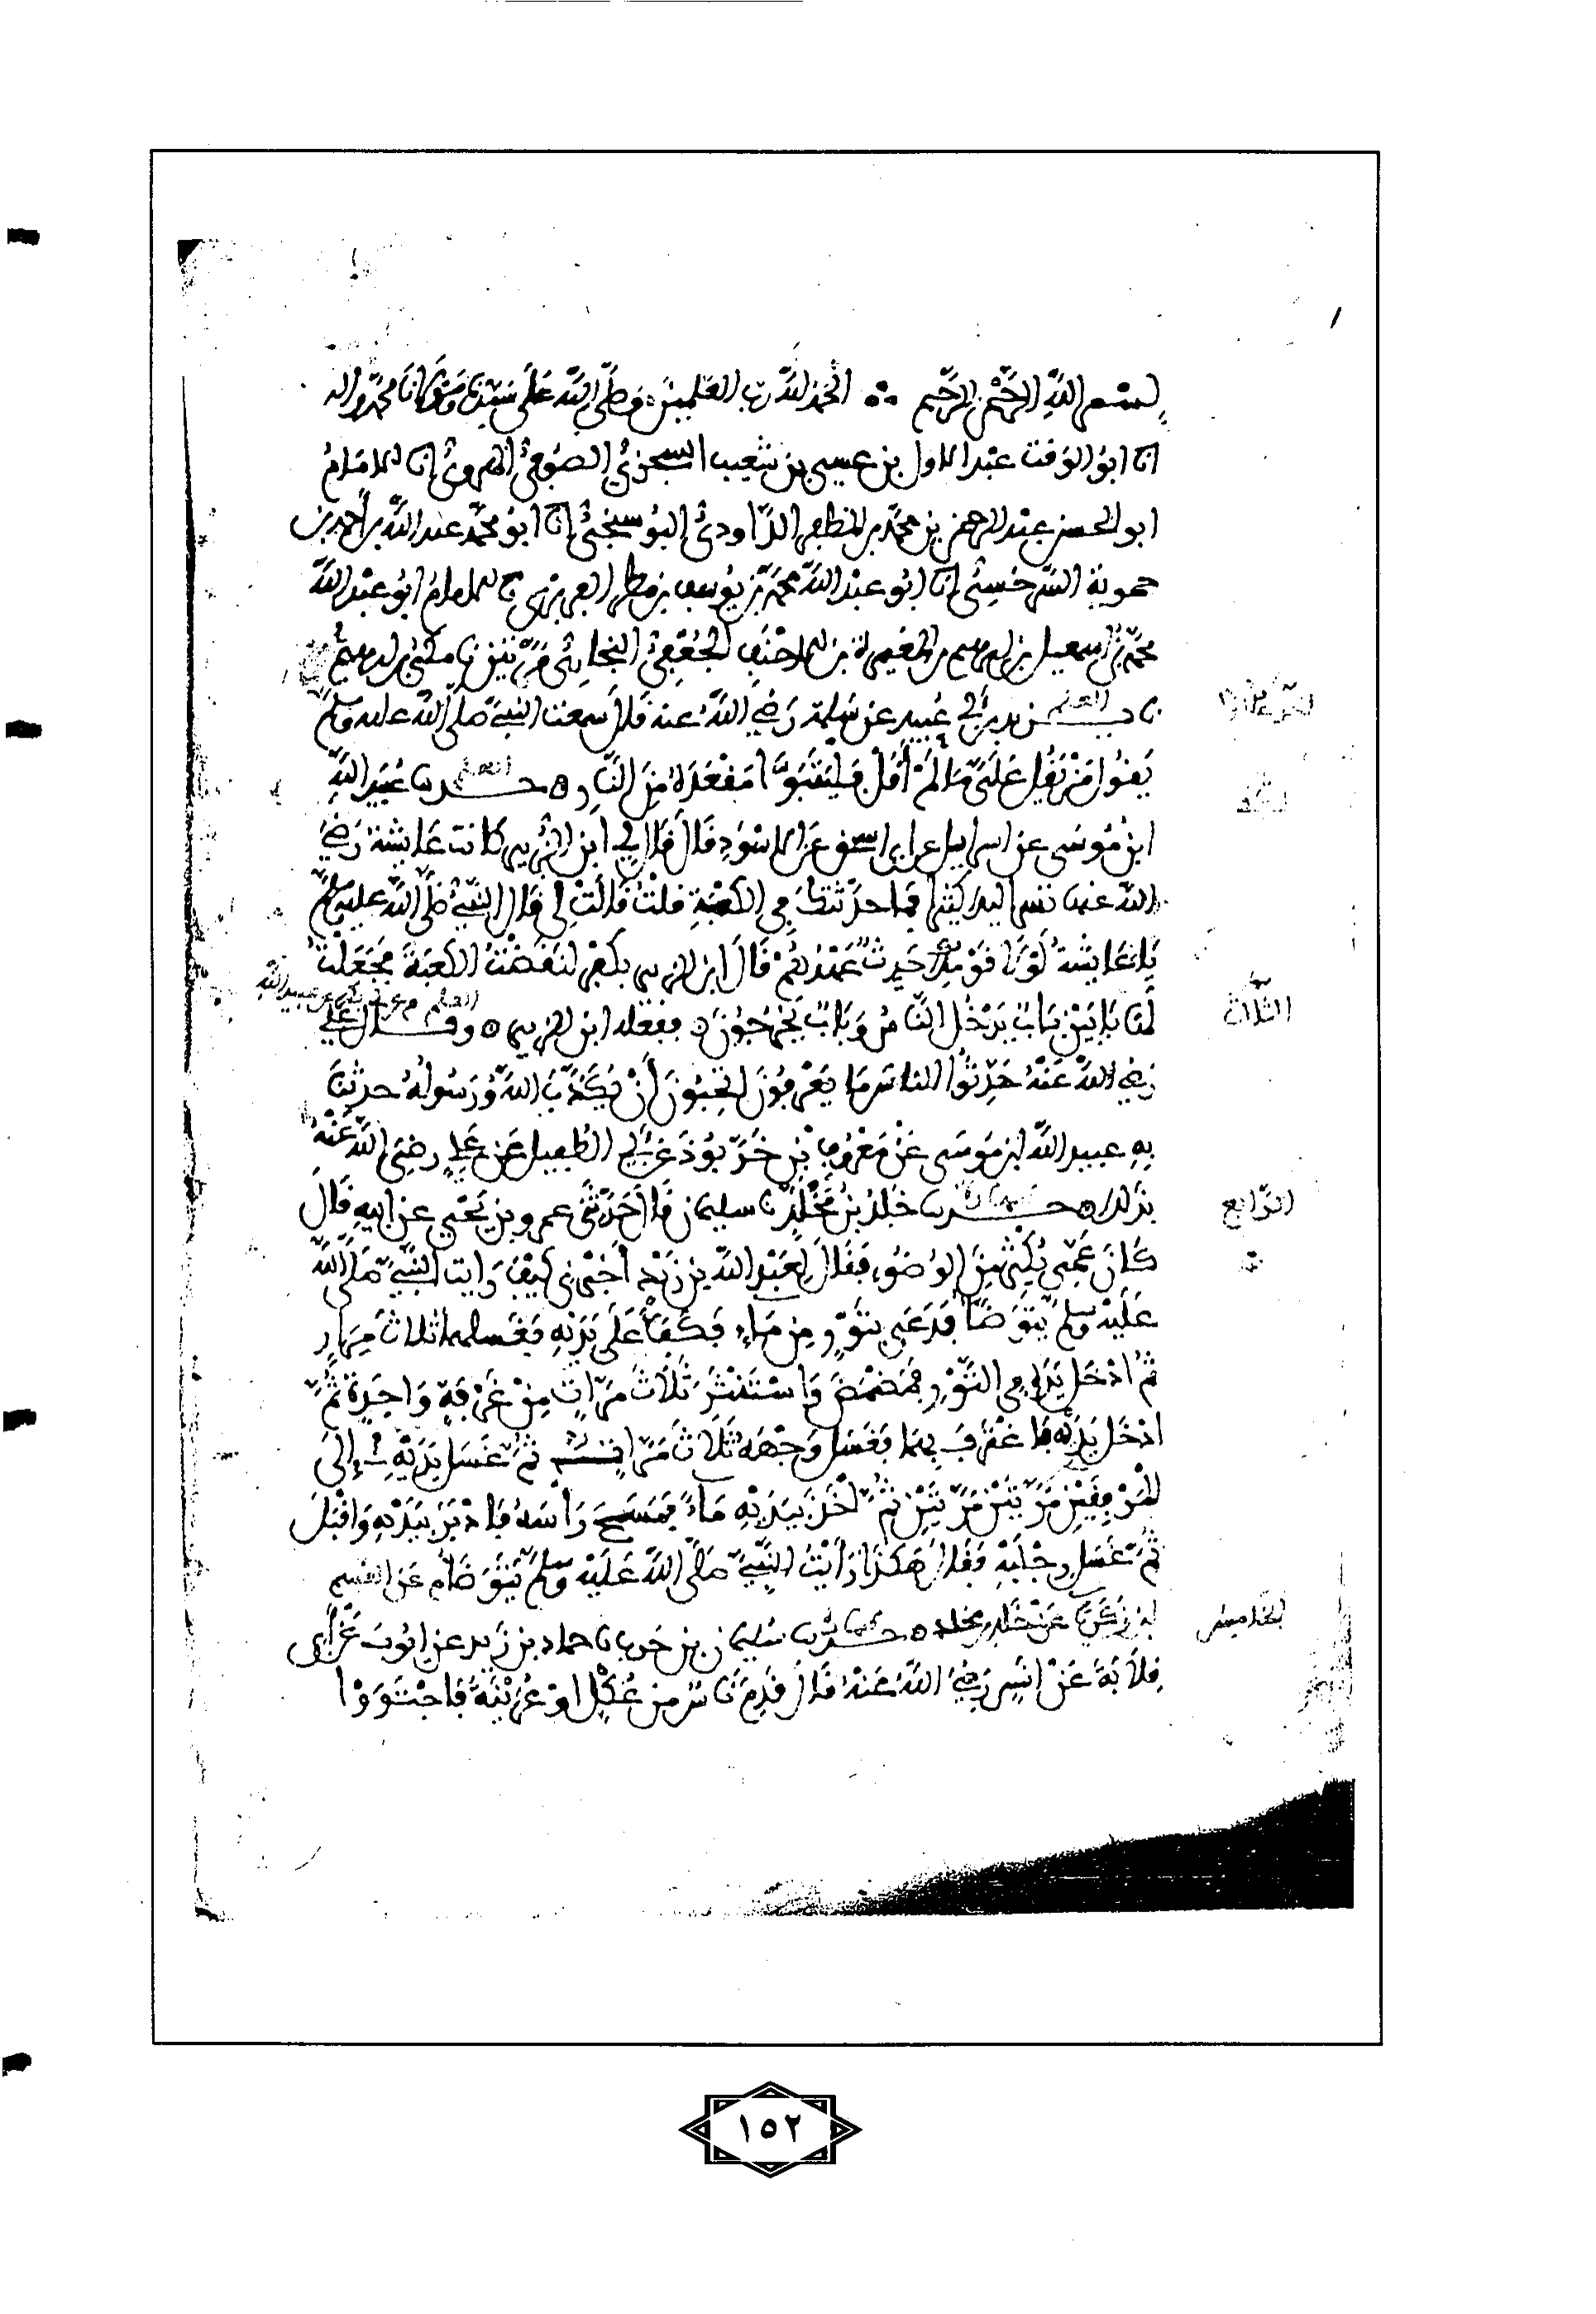 بسم الله الرحمن الرحيم الحمد لله رب العلمين وصلى الله على سيدنا ومولانا محمد واله
انا ابو الوقت عبد الاول بن عيسى بن شعيب السجزي الصوفي الهروي انا الامام
ابو الحسن عبد الرحمن بن محمد بن المظفر الداودي البوسنجي انا ابو محمد عبد الله بن احمد بن
حموية السرخسي انا ابو عبد الله محمد بن يوسف بن مطر الفربري نا الامام ابو عبد الله
محمد بن اسمعيل بن ابرهيم بن المغيرة بن الاحنف الجعفي البخاري نا مكي بن ابرهيم
نا يزيد بن ابي عبيد عن سلمة رضي الله عنه قال سمعت النبي صلى الله عليه وسلم
يقول من يقل علي ما لم اقل فليتبوأ مقعده من النار حدثنا عبيد الله
ابن موسى عن اسراييل عن ابي اسحق عن الاسود قال قال لي ابن الزبير كانت عايشة رضي
الله عنها تسر اليك كثيرا فما حدثتك في الكعبة قلت قالت لي قال النبي صلى الله عليه وسلم
يا عايشة لولا قومك حديث عهدهم قال ابن الزبير بكفر لنقضت الكعبة فجعلت
لها بابين باب يدخل الناس وباب يخرجون ففعله ابن الزبير وقال علي
رضي الله عنه حدثوا الناس بما يعرفون اتحبون أن يكذب الله ورسوله حدثنا
به عبيد الله ابن موسى عن معروف بن خربوذ عن ابي الطفيل عن علي رضي الله عنه
بذلك حدثنا خلد بن مخلد نا سليمان قال حدثني عمرو بن يحيى عن ابيه قال
كان عمي يكثر من الوضوء فقال لعبد الله بن زيد أخبرني كيف رايت النبي صلى الله
عليه وسلم يتوضأ فدعى بتور من ماء فكفأ على يديه فغسلهما ثلاث مرار
ثم ادخل يده في التور فمضمض واستنثر ثلاث مرات من غرفة واحدة ثم
ادخل يديه فاغترف بهما فغسل وجهه ثلاث مرات ثم غسل يديه إلى
المرفقين مرتين مرتين ثم اخذ بيديه ماء فمسح رأسه فادبر بيديه واقبل
ثم غسل رجليه فقال هكذا رأيت النبي صلى الله عليه وسلم يتوضأ م عن القسم
ابن زكريا عن خلد بن مخلد حدثنا سليمان بن حرب نا حماد بن زيد عن ايوب عن ابي
قلابة عن انس رضي الله عنه قال قدم ناس من عكل او عرينة فاجتووا
الثلاث
الرابع
الخامس
١٥٢